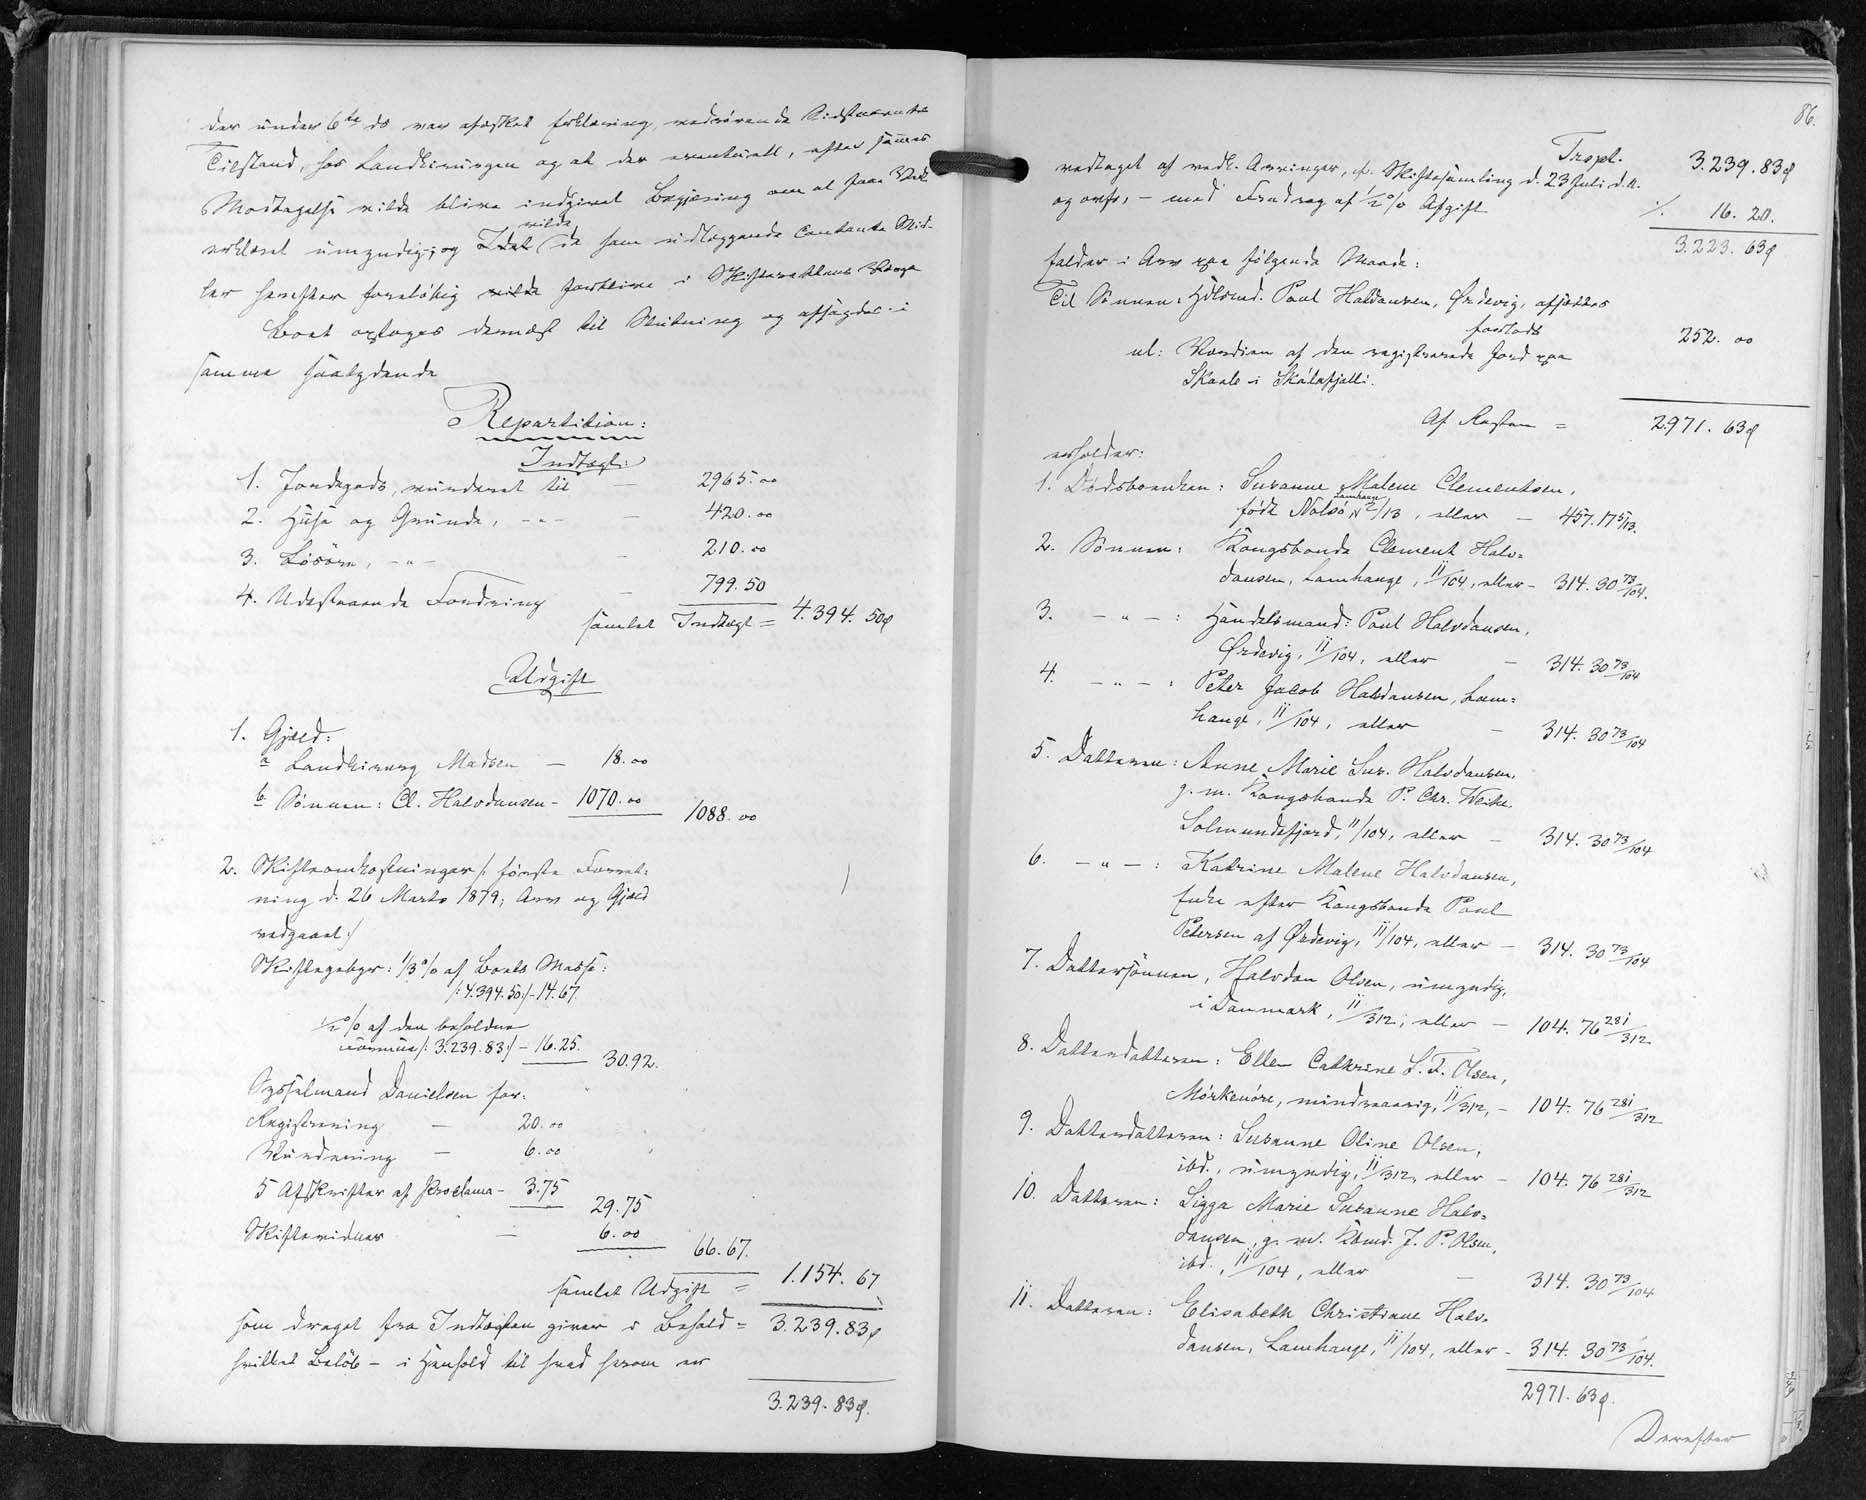 der under 6te ds var afæsket Erklæring, vedrørende Sidstnævntes
Tilstand, hos Landkirurgen og at der eventuelt, efter sammes
Modtagelse vilde blive indgivet Begjæring om at faae Ved-
erklæret umyndig; og vilde de ham udlæggende Contante Mid-
ler herefter foreløbig forblive i Skifterettens Værge
Boet optoges dernæst til Slutning og afsagdes i
samme saalydende
Repartition:
Indtægt:
1. Jordegods, vurderet til — 2965.00
2. Huse og Grunde, -"- — 420.00
3. Løsøre, -"- — 210.00
4. Udestaaende Fordring — 799.50
samlet Indtægt = 4.394.50
Udgift
1. Gjæld:
a Landkirurg Madsen — 18.00
b Sønnen: Cl. Halvdansen - 1070.00 1088.00
2. Skifteomkostninger /: første Forret-
ning d. 26 Marts 1879; Arv og Gjæld
vedgaaet :/
Skiftegebyr: 1/3 % af Boets Masse:
/: 4.394.50 :/ - 14.67.
1/2 % af den beholdne
/: 3.239.83 :/ - 16.25. 30.92.
Sysselmand Danielsen for:
Registrering — 20.00
Vurdering — 6.00
5 Afskrifter af Proclama - 3.75 29.75
Skiftevidner — 6.00 66.67.
samlet Udgift = 1.154.67
som draget fra Indtægten giver i Behold = 3.239.83
hvilket Beløb - i Henhold til hvad herom er
3.239.83
86.
Trspt. 3.239.83
vedtaget af vedk. Arvinger, cf. Skiftesamling d. 23 Juli d. A.
og ovfr., - med Fradrag af 1/2 % Afgift ./. 16.20.
3.223.63
falder i Arv paa følgende Maade:
Til Sønnen: Hdlsmd. Poul Halvdansen, Ørdevig, afsættes
forlods 252.00
nl: Værdien af den registrerede Jord paa
Skaale i Skálafjalli.
Af Resten = 2971.63
erholder:
1. Dødsboenken: Susanne Malene Clementsen,
født Nolsö, Lamhauge 2/13, eller — 457.17 5/13.
2. Sønnen: Kongsbonde Clement Halv-
dansen, Lamhauge, 11/104, eller - 314.30 73/104.
3. -"- : Handelsmand: Poul Halvdansen,
Ørdevig, 11/104, eller — 314.30 73/104
4. -"- : Peter Jacob Halvdansen, Lam-
hauge, 11/104, eller — 314.30 73/104
5. Datteren: Anne Marie Sus. Halvdansen,
g. m. Kongsbonde P. Chr. Weihe,
Solmundefjord, 11/104, eller — 314.30 73/104
6. -"- : Katrine Malene Halvdansen,
Enke efter Kongsbonde Poul
Petersen af Ørdevig, 11/104, eller — 314.30 73/104
7. Dattersønnen, Halvdan Olsen, umyndig,
i Danmark, 11/312, eller — 104.76 281/312
8. Datterdatteren: Ellen Cathrine S. F. Olsen,
Mørkenøre, mindreaarig, 11/312, - 104.76 281/312
9. Datterdatteren: Susanne Oline Olsen,
ibd., umyndig, 11/312, eller — 104.76 281/312
10. Datteren: Sigga Marie Susanne Halv-
dansen, g. m. Kbmd. J. P. Olsen,
ibd., 11/104, eller — 314.30 73/104
11. Datteren: Elisabeth Christiane Halv-
dansen, Lamhauge, 11/104, eller - 314.30 73/104.
2971.63
Derefter